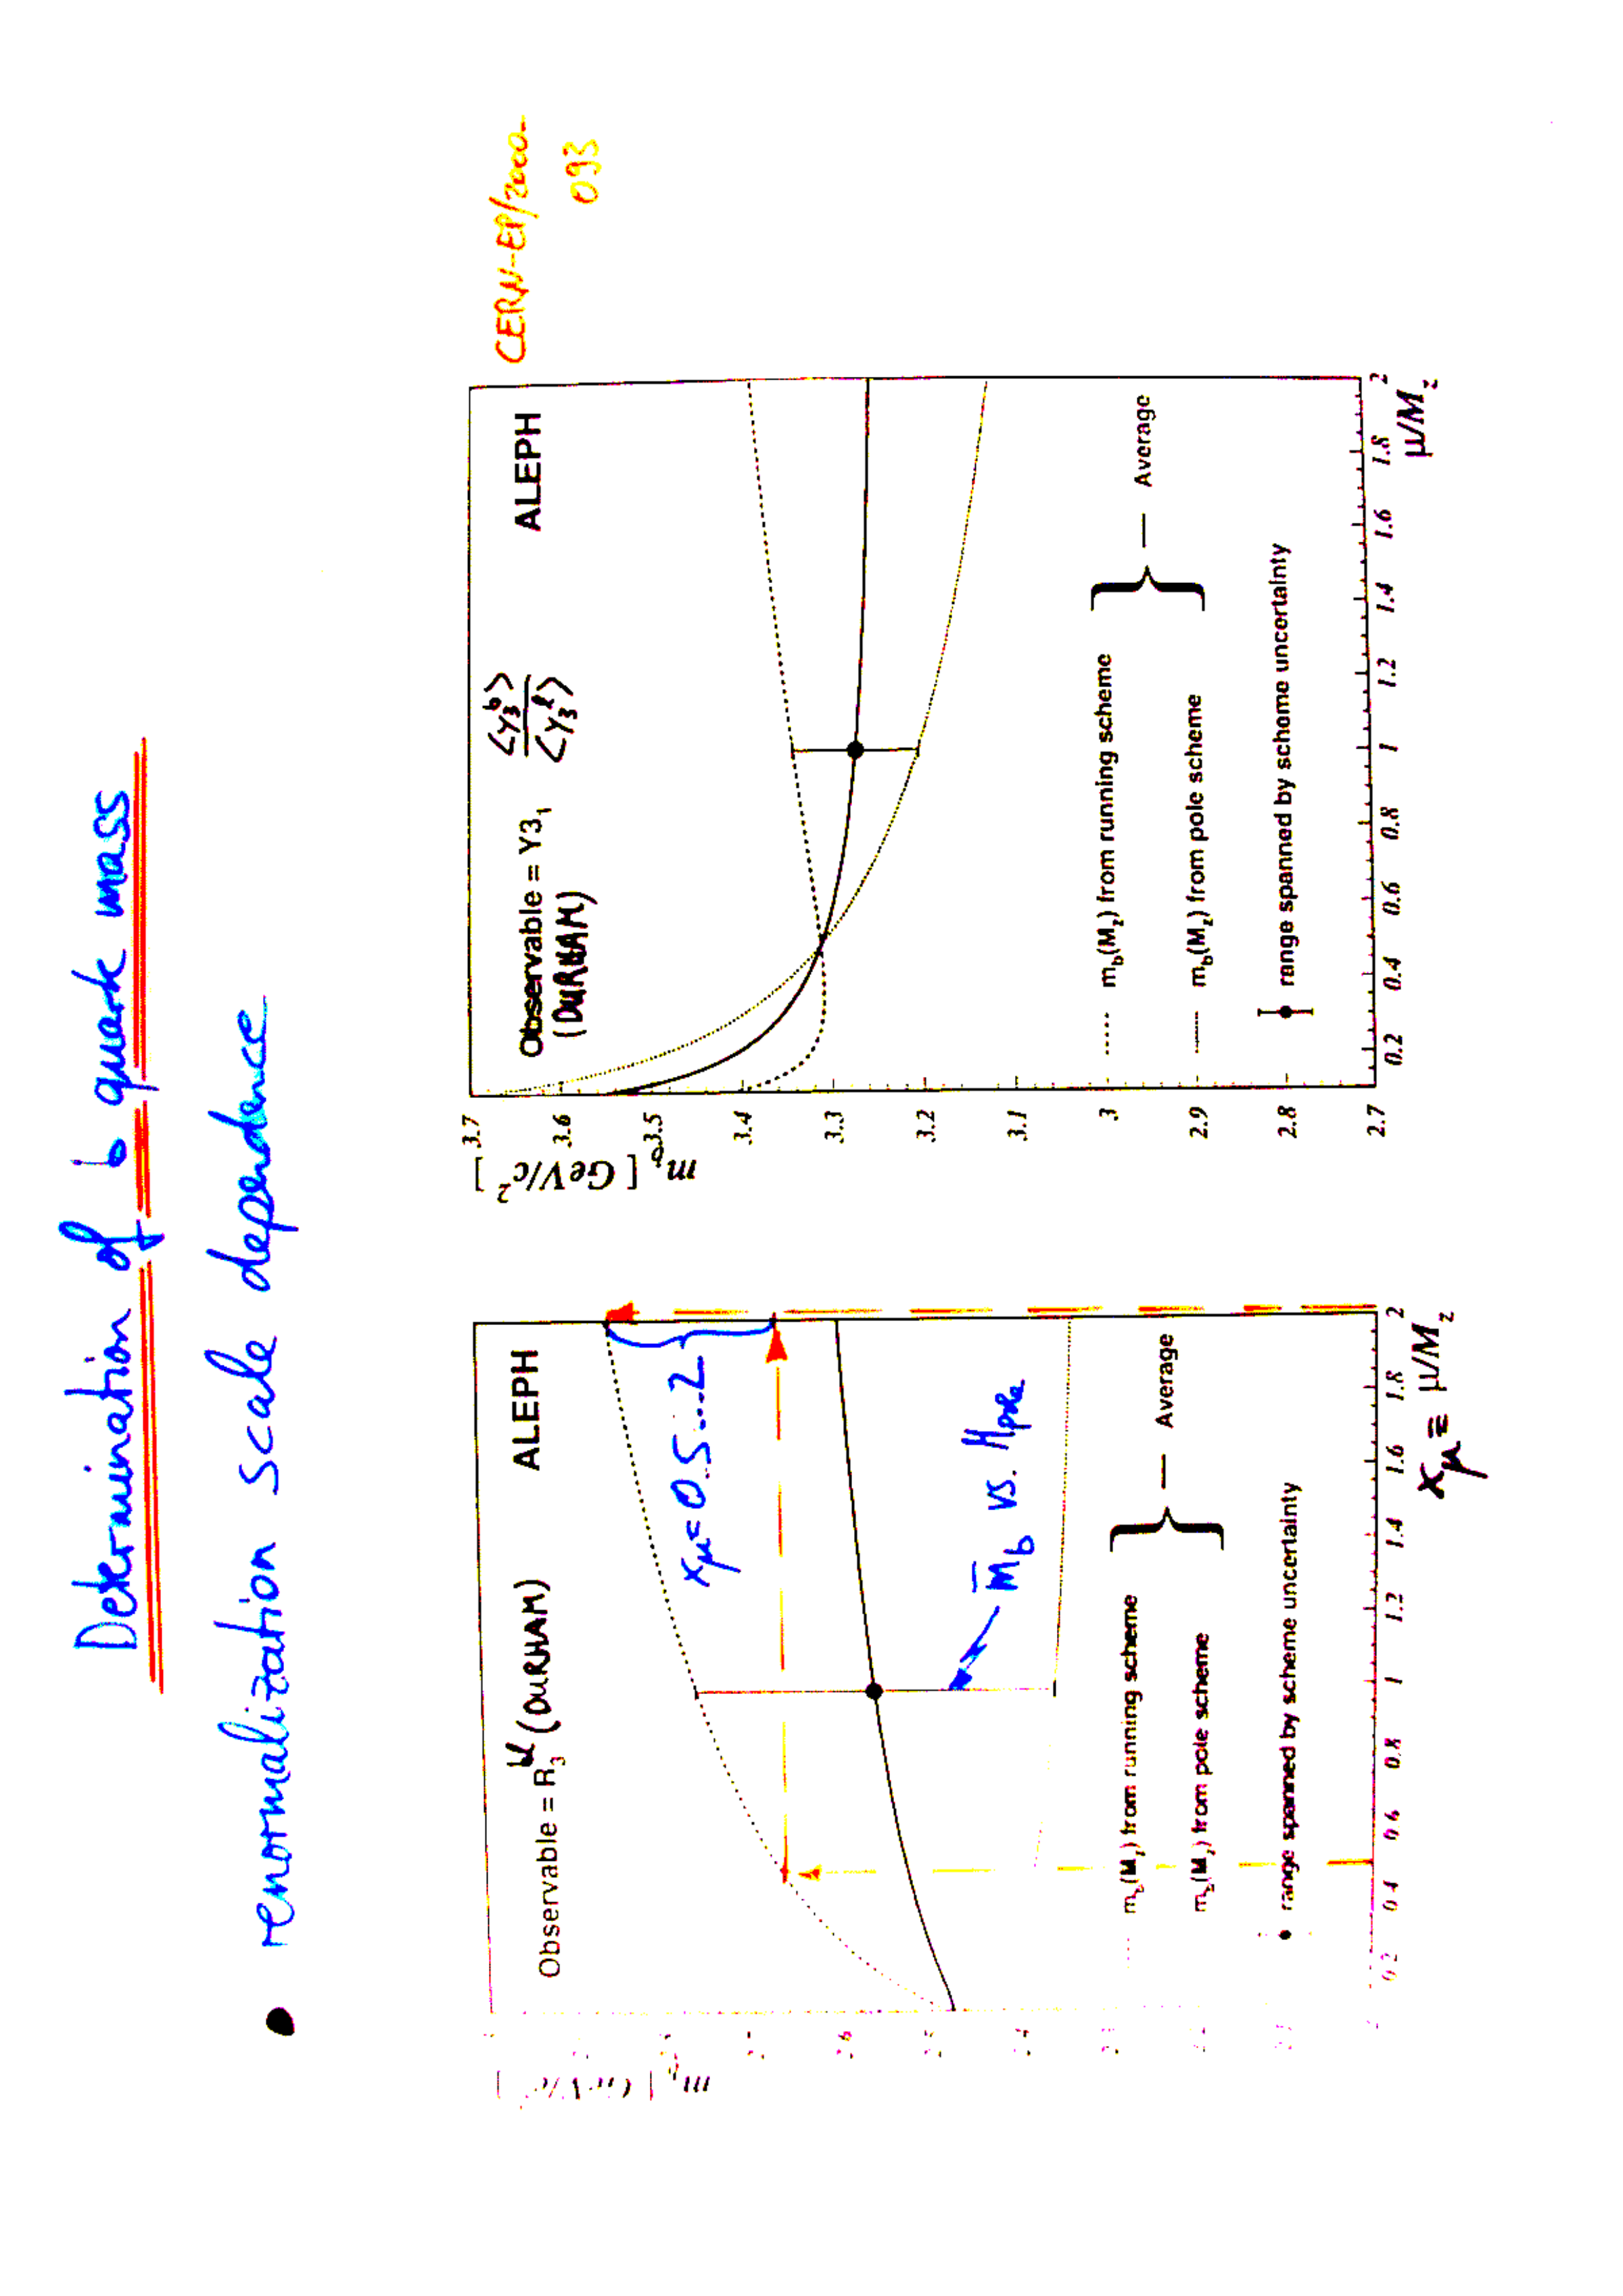 Determination of b quark mass
• renormalization scale dependence
CERN-EP/2000-
093
Observable = R₃ᵇˡ (DURHAM)
ALEPH
xμ = 0.5...2
m̄b vs. Mpole
mb(Mz) from running scheme
mb(Mz) from pole scheme
Average
range spanned by scheme uncertainty
0.2 0.4 0.6 0.8 1 1.2 1.4 1.6 1.8 2
xμ = μ/Mz
mb [GeV/c²]
Observable = Y3₁
(DURHAM)
<y₃ᵇ>
<y₃ˡ>
ALEPH
mb [GeV/c²]
3.7
3.6
3.5
3.4
3.3
3.2
3.1
3
2.9
2.8
2.7
mb(Mz) from running scheme
mb(Mz) from pole scheme
Average
range spanned by scheme uncertainty
0.2 0.4 0.6 0.8 1 1.2 1.4 1.6 1.8 2
μ/Mz